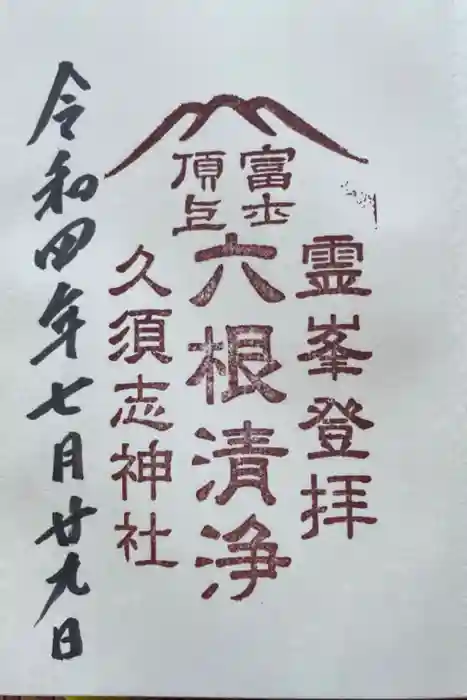 霊峯登拝
富士
頂上
六根清浄
久須志神社
令和四年七月廿九日